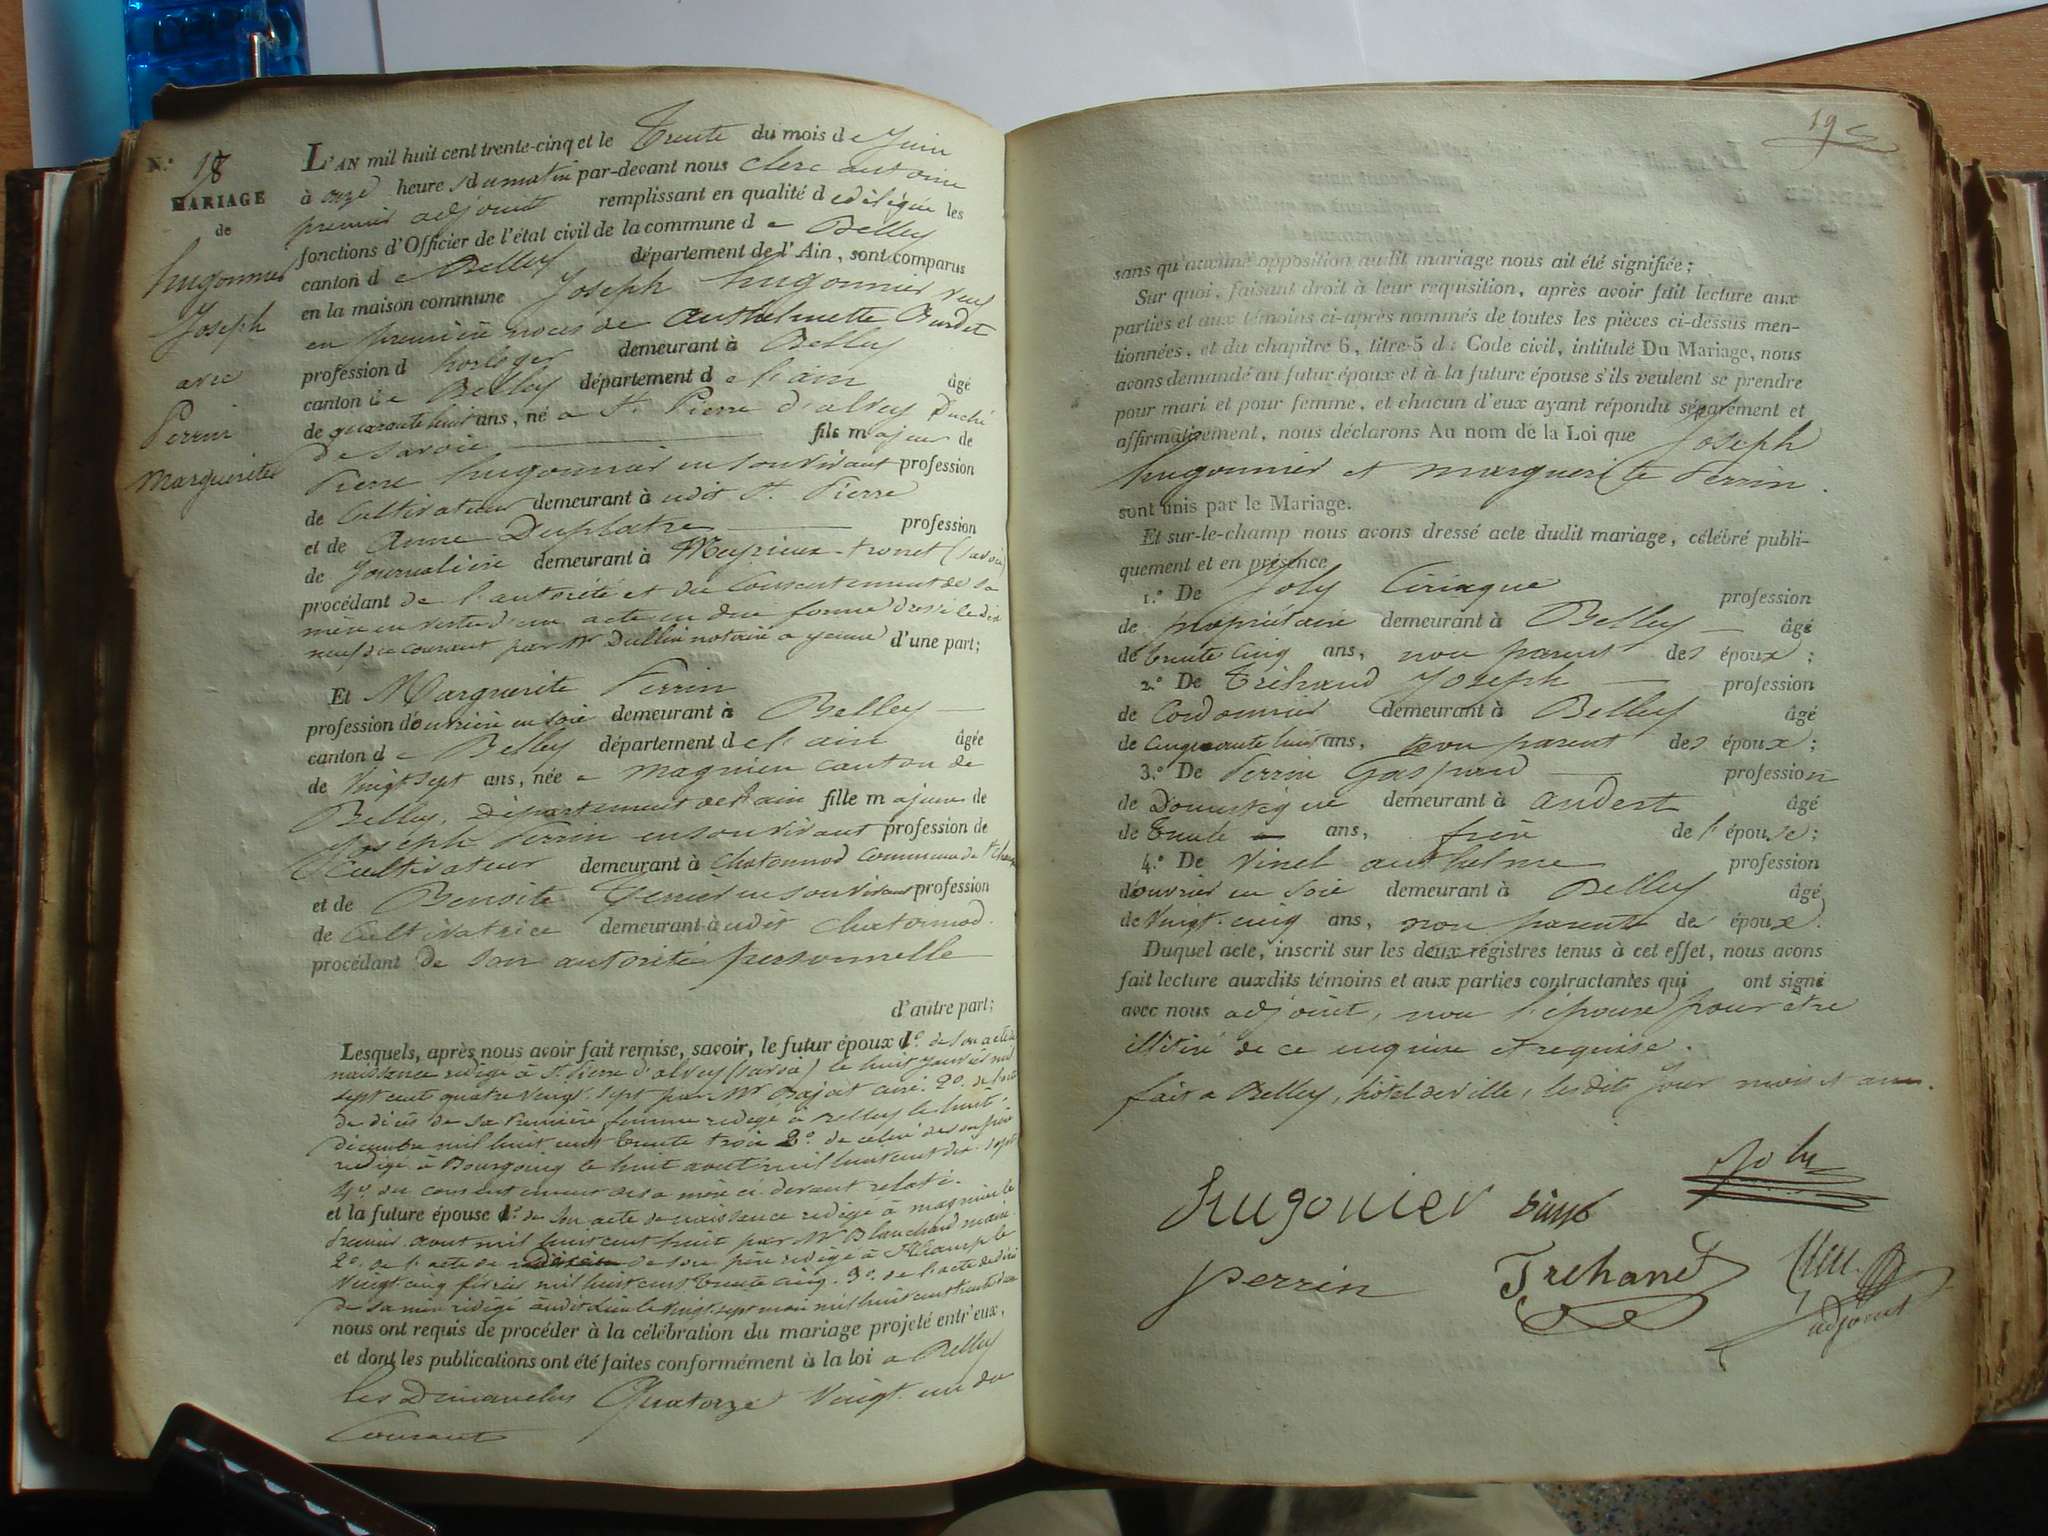 N.° 18
MARIAGE
de
hugonnier
Joseph
avec
Perrin
Marguerite
L'AN mil huit cent trente-cinq et le Trente du mois de Juin
à onze heures du matin par-devant nous Clerc antoine
premier adjoint remplissant en qualité d e délégué les
fonctions d'Officier de l'état civil de la commune d e Belley
canton d e Belley département de l'Ain, sont comparus
en la maison commune Joseph hugonnier veuf
en première noces de Anthelmette Burdet
profession d horloger demeurant à Belley
canton de Belley département d e l'ain âgé
de quarante huit ans, né a St. Pierre d'alvey Duché
de Savoie fils majeur de
Pierre hugonnier en son vivant profession
de Cultivateur demeurant à udit St. Pierre
et de Anne Duplatre profession
de Journalière demeurant à Meyrieux-trouet (Savoie)
procédant de l'autorité et du Consentement de sa
mère en vertu d'un acte en due forme dressé le dix
neuf du courant par Mr Dullin notaire a yenne d'une part;
Et Marguerite Perrin
profession d'ouvrière en soie demeurant à Belley
canton d e Belley département d e l'ain âgée
de Vingt sept ans, née a magnieu canton de
Belley, Département de l'ain fille majeure de
Joseph Perrin en son vivant profession de
Cultivateur demeurant à Chatonnod Commune de St Champ
et de Benoite en son vivant profession
de Cultivatrice demeurant à udit Chatonnod.
procédant de son autorité personnelle
d'autre part;
Lesquels, après nous avoir fait remise, savoir, le futur époux 1.° de son acte de
naissance rédigé à St. Pierre d'alvey (Savoie) le huit Janvier mil
sept cent quatre vingt sept par Mr curé. 2.° de l'acte
de décès de sa Première femme rédigé à Belley le huit
décembre mil huit cent trente trois 3.° de celui de son père
rédigé à Bourgoing le huit aout mil huit cent dix sept
4.° du consentement de sa mère ci-devant relaté.
et la future épouse 1.° de son acte de naissance rédigé à magnieu le
Premier aout mil huit cent huit par Mr Blanchard maire
2.° de l'acte de de son père rédigé à St Champ le
Vingt cinq février mil huit cent trente cinq. 3.° de l'acte de décès
de sa mère rédigé audit lieu le Vingt sept mai mil huit cent trente deux
nous ont requis de procéder à la célébration du mariage projeté entr'eux,
et dont les publications ont été faites conformément à la loi a Belley
les Dimanches Quatorze Vingt-un du
Courant
19
sans qu'aucune opposition audit mariage nous ait été signifiée;
Sur quoi, faisant droit à leur requisition, après avoir fait lecture aux
parties et aux témoins ci-après nommés de toutes les pièces ci-dessus men-
tionnées, et du chapitre 6, titre 5 du Code civil, intitulé Du Mariage, nous
avons demandé au futur époux et à la future épouse s'ils veulent se prendre
pour mari et pour femme, et chacun d'eux ayant répondu séparément et
affirmativement, nous déclarons Au nom de la Loi que Joseph
hugonnier et marguerite Perrin.
sont unis par le Mariage.
Et sur-le-champ nous avons dressé acte dudit mariage, célébré publi-
quement et en présence
1.° De Joly Ciriaque profession
de propriétaire demeurant à Belley âgé
de trente cinq ans, non parent des époux;
2.° De Tréhand Joseph profession
de Cordonnier demeurant à Belley âgé
de Cinquante huit ans, non parent des époux;
3.° De Perrin Gaspard profession
de Domestique demeurant à andert âgé
de trente ans, frère de l'épouse;
4.° De Vinet anthelme profession
d'ouvrier en Soie demeurant à Belley âgé
de Vingt-cinq ans, non parent des époux.
Duquel acte, inscrit sur les deux régistres tenus à cet effet, nous avons
fait lecture auxdits témoins et aux parties contractantes qui ont signé
avec nous adjoint, non l'épouse pour être
illitiré de ce enquise et requise.
fait a Belley, hôtel de ville, lesdits Jour mois et an.
hugonier
Joly
perrin
Trehand
adjoint